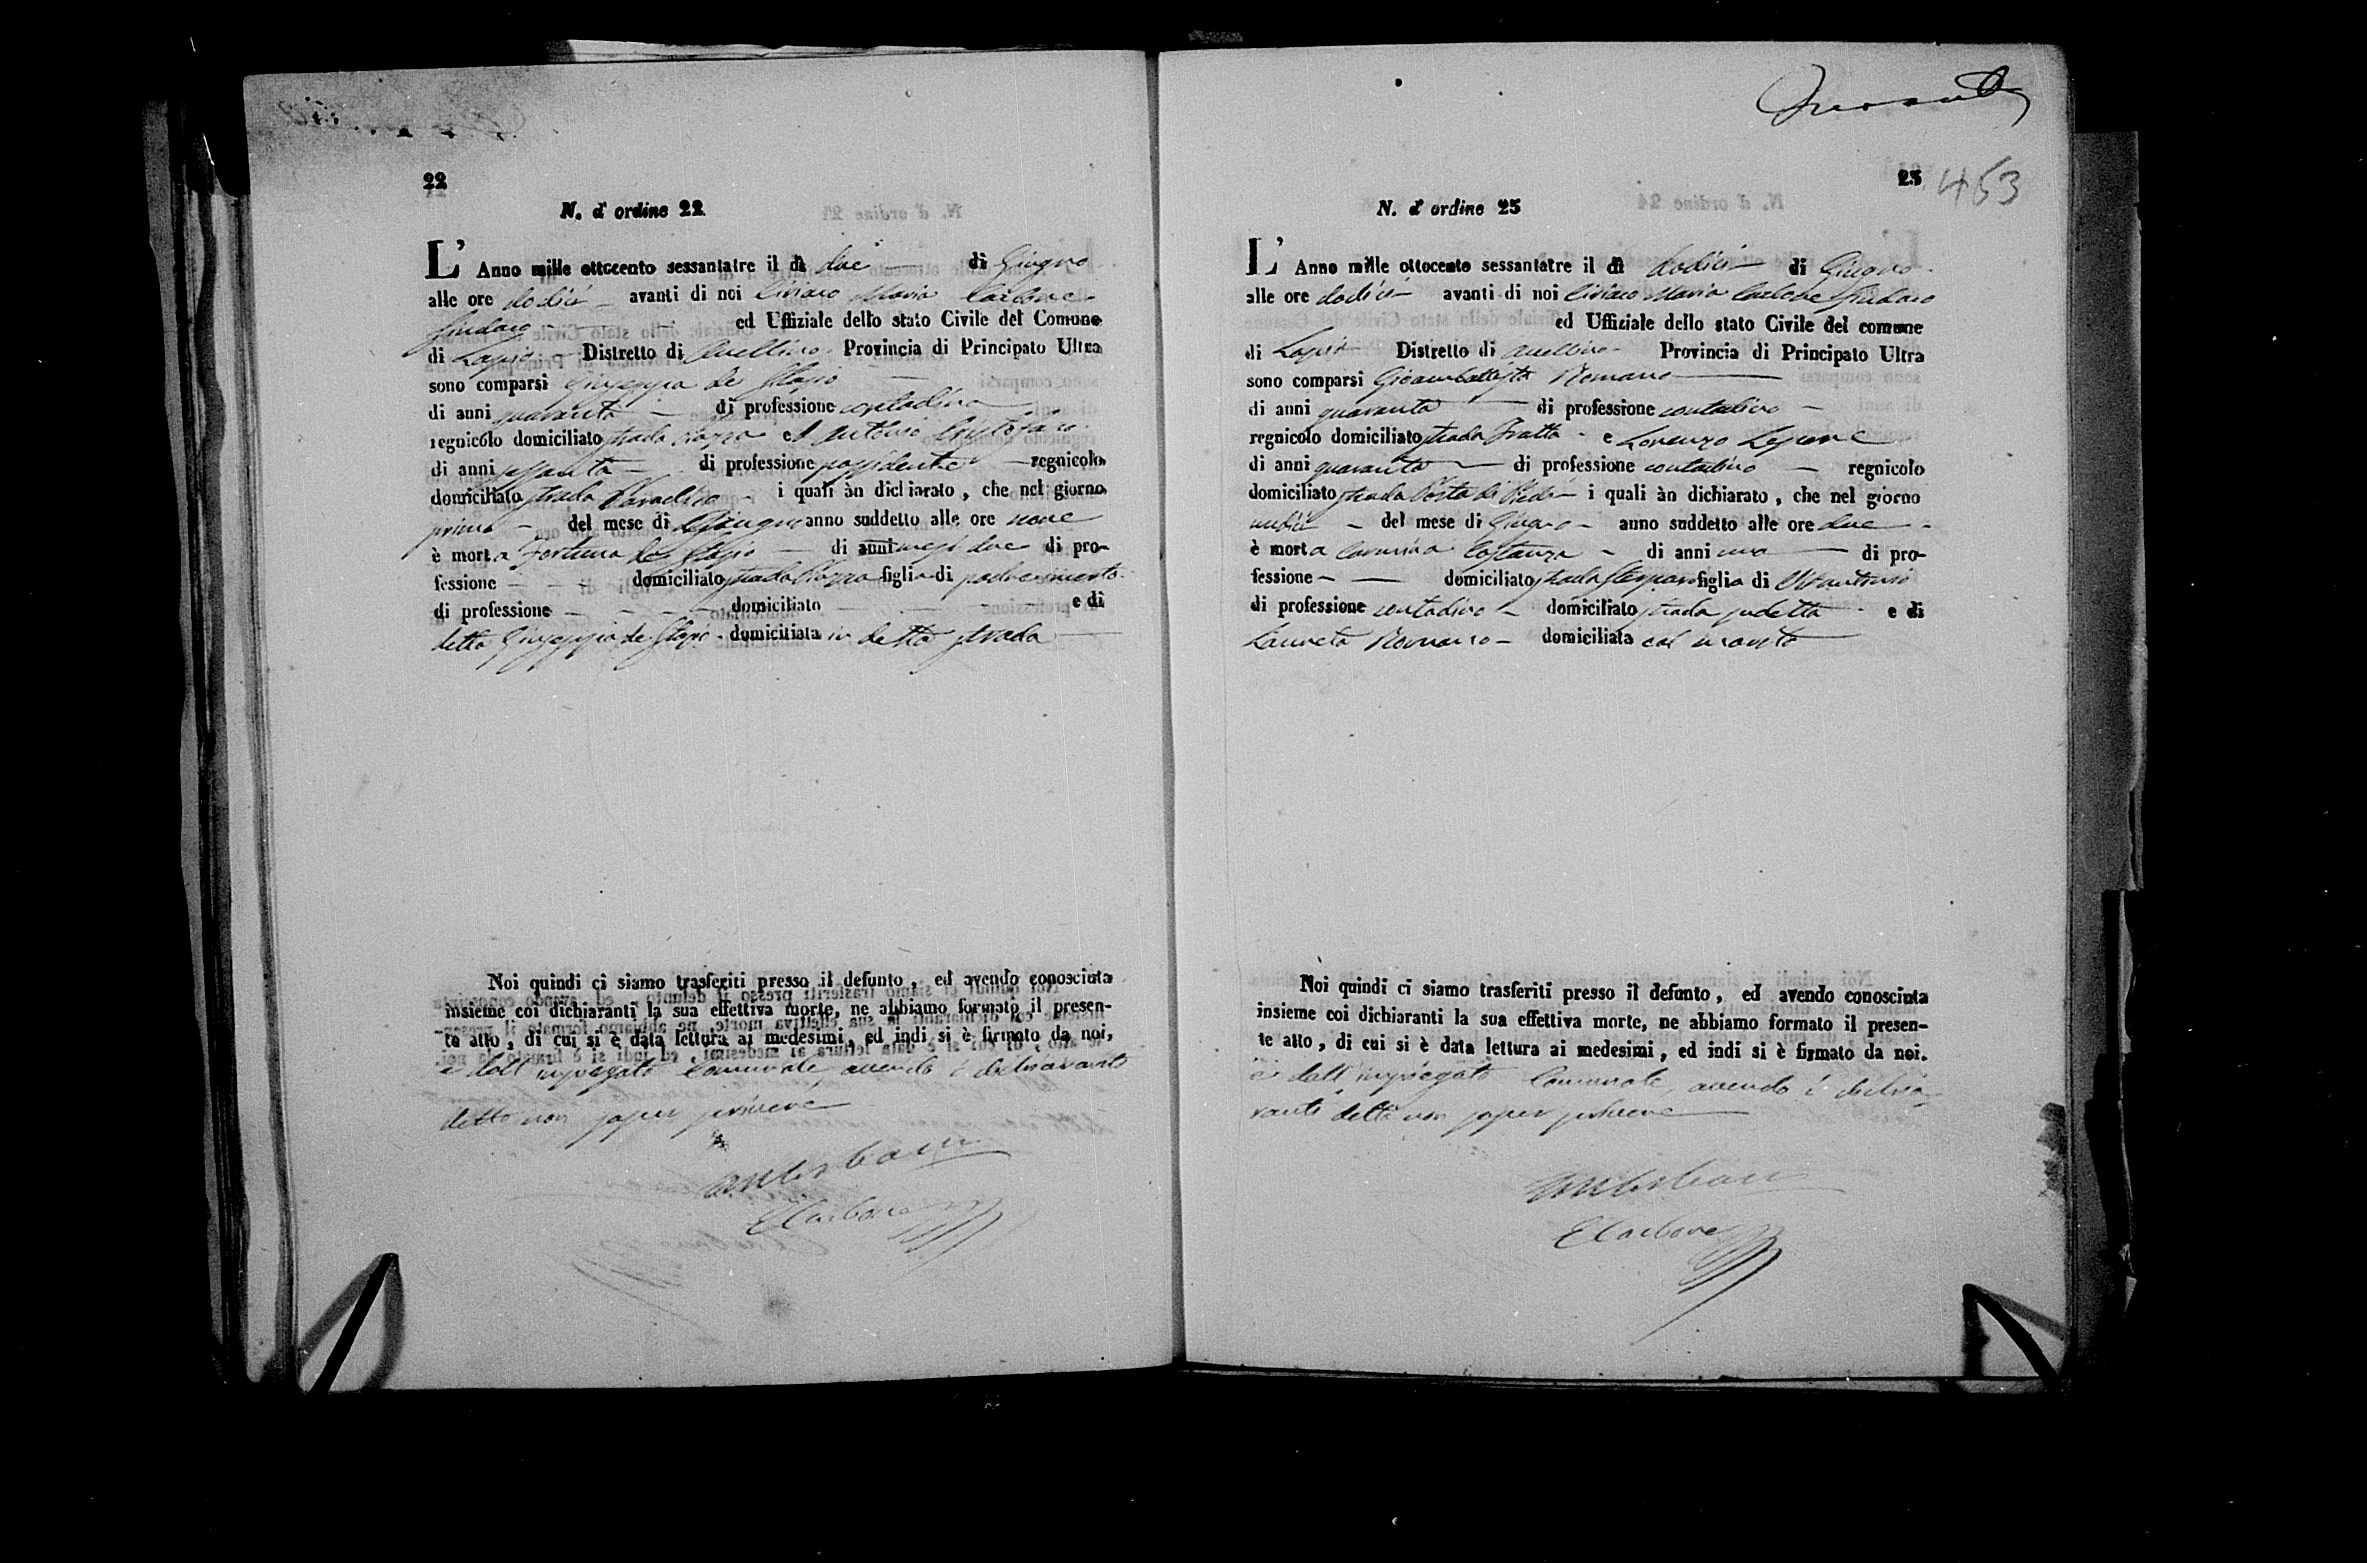 22
N. d' ordine 22
L' Anno mille ottocento sessantatre il dì due di Giugno
alle ore dodici avanti di noi Ciriaco Maria Carbone
Sindaco ed Uffiziale dello stato Civile del Comune
di Lapio Distretto di Avellino Provincia di Principato Ultra
sono comparsi Giuseppa de
di anni quaranta di professione contadina
regnicolo domiciliato strada Piazza ed Antonio
di anni sessanta di professione possidente regnicolo
domiciliato strada i quali àn dichiarato, che nel giorno
primo del mese di Giugno anno suddetto alle ore nove
è morta Fortuna de di anni mesi due di pro-
fessione domiciliato strada Piazza figlia di padre incerto
di professione domiciliato e di
detta Giuseppa de domiciliata in detta strada
Noi quindi ci siamo trasferiti presso il defunto, ed avendo conosciuta
insieme coi dichiaranti la sua effettiva morte, ne abbiamo formato il presen-
te atto, di cui si è data lettura ai medesimi, ed indi si è firmato da noi,
e dall'impiegato Comunale, avendo i dichiaranti
detto non saper scrivere
CCarbone
23 453
N. d' ordine 23
L' Anno mille ottocento sessantatre il dì dodici di Giugno
alle ore dodici avanti di noi Ciriaco Maria Carbone Sindaco
ed Uffiziale dello stato Civile del comune
di Lapio Distretto di Avellino Provincia di Principato Ultra
sono comparsi Gioambattista Romano
di anni quaranta di professione contadino
regnicolo domiciliato strada Fratta e Lorenzo Lepore
di anni quaranta di professione contadino regnicolo
domiciliato strada Costa di i quali àn dichiarato, che nel giorno
undici del mese di Giugno anno suddetto alle ore due
è morta Carmina Costanza di anni uno di pro-
fessione domiciliato strada figlia di Vitantonio
di professione contadino domiciliato strada sudetta e di
Laureta Romano domiciliata col marito
Noi quindi ci siamo trasferiti presso il defunto, ed avendo conosciuta
insieme coi dichiaranti la sua effettiva morte, ne abbiamo formato il presen-
te atto, di cui si è data lettura ai medesimi, ed indi si è firmato da noi.
e dall'impiegato Comunale, avendo i dichia-
ranti detto non saper scrivere
CCarbone